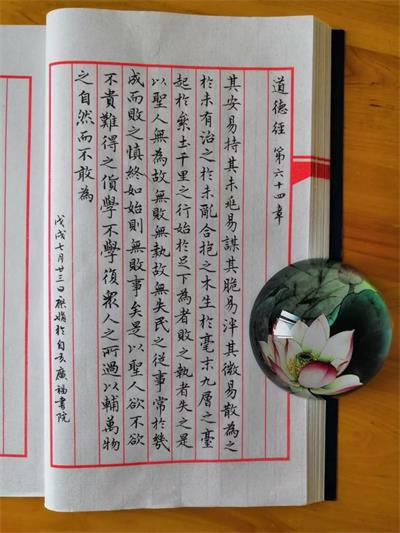 道德經 第六十四章
其安易持其未兆易謀其脆易泮其微易散為之
於未有治之於未亂合抱之木生於毫末九層之臺
起於累土千里之行始於足下為者敗之執者失之是
以聖人無為故無敗無執故無失民之從事常於幾
成而敗之慎終如始則無敗事矣是以聖人欲不欲
不貴難得之貨學不學復眾人之所過以輔萬物
之自然而不敢為
戊戌七月廿三日娟於白云廣福書院